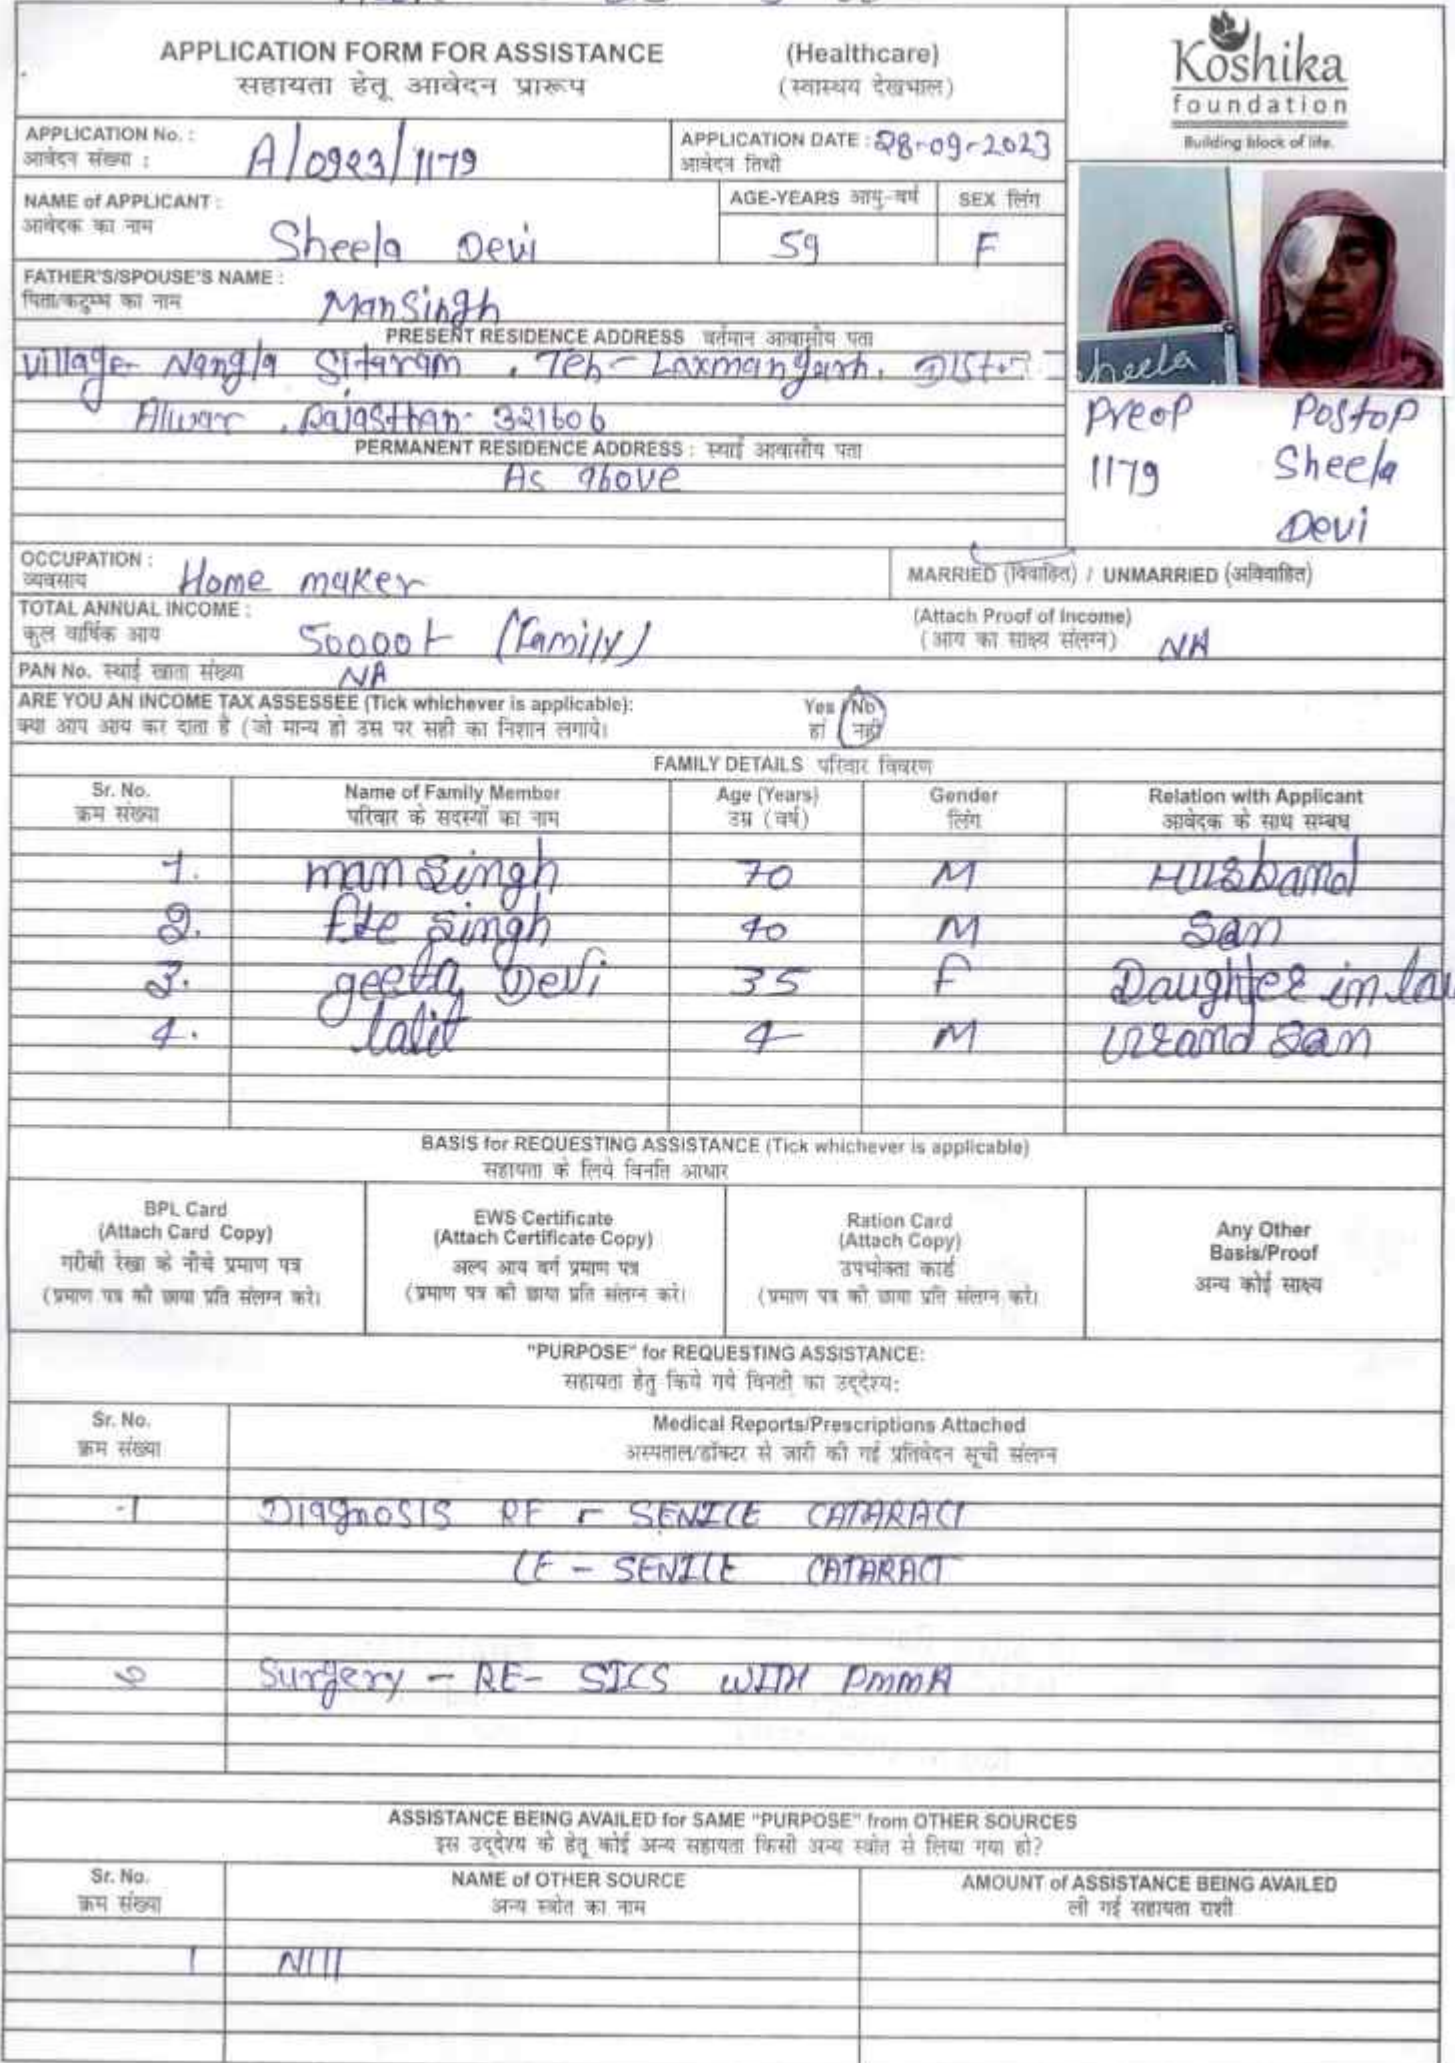 APPLICATION FORM FOR ASSISTANCE (Healthcare)
सहायता हेतू आवेदन प्रारूप (स्वास्थय देखभाल)
Koshika
foundation
Building block of life.
APPLICATION No. : A/0923/1179
आवेदन संख्या :
APPLICATION DATE : 28-09-2023
आवेदन तिथी
NAME of APPLICANT : Sheela Devi
आवेदक का नाम
AGE-YEARS आयु-वर्ष 59
SEX लिंग F
FATHER'S/SPOUSE'S NAME : Mansingh
पिता/कटुम्ब का नाम
PRESENT RESIDENCE ADDRESS वर्तमान आवासीय पता
Village- Nangla Sitaram , Teh- Laxmangarh, Distt
Alwar , Rajasthan- 321606
PERMANENT RESIDENCE ADDRESS : स्थाई आवासीय पता
As above
sheela
Preop Postop
1179 Sheela
Devi
OCCUPATION : Home maker
व्यवसाय
MARRIED (विवाहित) / UNMARRIED (अविवाहित)
TOTAL ANNUAL INCOME : 50000/- (Family)
कुल वार्षिक आय
(Attach Proof of Income)
(आय का साक्ष्य संलग्न) NA
PAN No. स्थाई खाता संख्या NA
ARE YOU AN INCOME TAX ASSESSEE (Tick whichever is applicable): Yes / No
क्या आप आय कर दाता है (जो मान्य हो उस पर सही का निशान लगाये। हां / नहीं
FAMILY DETAILS परिवार विवरण
Sr. No. Name of Family Member Age (Years) Gender Relation with Applicant
क्रम संख्या परिवार के सदस्यों का नाम उम्र (वर्ष) लिंग आवेदक के साथ सम्बध
1. man singh 70 M Husband
2. fte singh 40 M San
3. geeta Devi 35 F Daughter in law
4. lalit 4 M Grand San
BASIS for REQUESTING ASSISTANCE (Tick whichever is applicable)
सहायता के लिये विनति आधार
BPL Card
(Attach Card Copy)
गरीबी रेखा के नीचे प्रमाण पत्र
(प्रमाण पत्र की छाया प्रति संलग्न करे।
EWS Certificate
(Attach Certificate Copy)
अल्प आय वर्ग प्रमाण पत्र
(प्रमाण पत्र की छाया प्रति संलग्न करे।
Ration Card
(Attach Copy)
उपभोक्ता कार्ड
(प्रमाण पत्र की छाया प्रति संलग्न करे।
Any Other
Basis/Proof
अन्य कोई साक्ष्य
"PURPOSE" for REQUESTING ASSISTANCE:
सहायता हेतु किये गये विनती का उद्देश्य:
Sr. No. Medical Reports/Prescriptions Attached
क्रम संख्या अस्पताल/डॉक्टर से जारी की गई प्रतिवेदन सूची संलग्न
1 Diagnosis RE - SENILE CATARACT
LE - SENILE CATARACT
2 Surgery - RE- SICS WITH PMMA
ASSISTANCE BEING AVAILED for SAME "PURPOSE" from OTHER SOURCES
इस उद्देश्य के हेतू कोई अन्य सहायता किसी अन्य स्त्रोत से लिया गया हो?
Sr. No. NAME of OTHER SOURCE AMOUNT of ASSISTANCE BEING AVAILED
क्रम संख्या अन्य स्त्रोत का नाम ली गई सहायता राशी
1 Nill